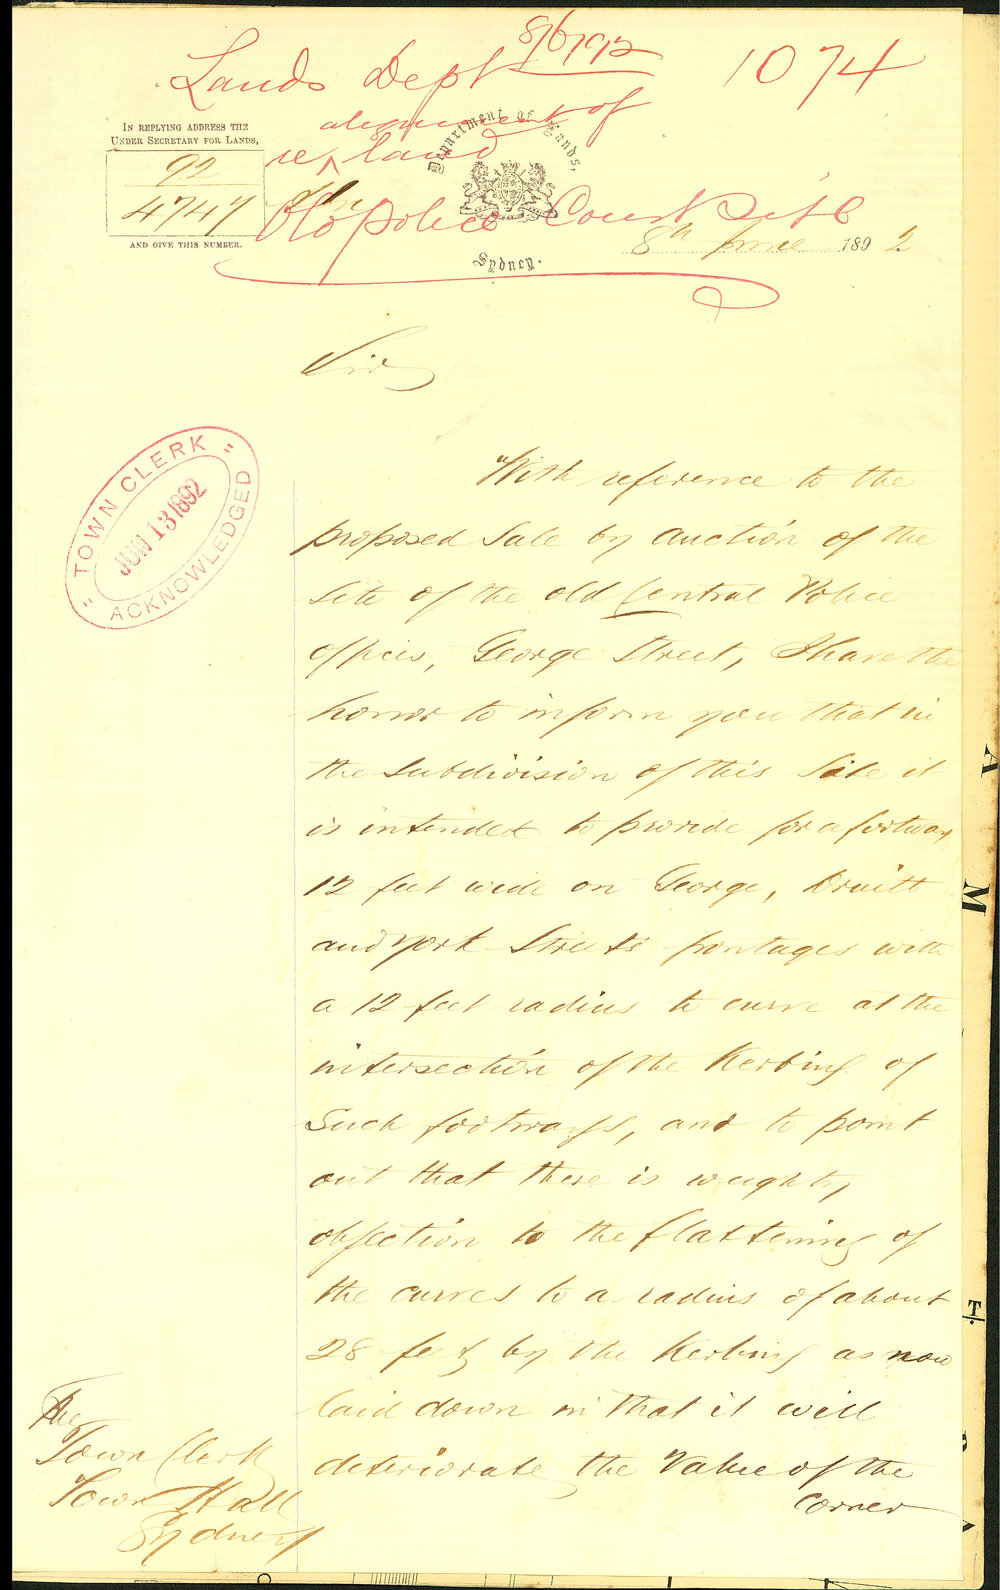 Lands Dept 8/6/92 1074
alignment of
re ^ land
Old Police Court Site
Department of Lands,
Sydney.
IN REPLYING ADDRESS THE
UNDER SECRETARY FOR LANDS,
92
4747
AND GIVE THIS NUMBER.
8th June 1892
Sir,
"TOWN CLERK"
JUN 13 1892
ACKNOWLEDGED
With reference to the
proposed Sale by auction of the
Site of the old Central Police
offices, George Street, I have the
honor to inform you that in
the subdivision of this Site it
is intended to provide for a footway
12 feet wide on George, Druitt
and York Streets frontages with
a 12 feet radius to curve at the
intersection of the Kerbing of
Such footways, and to point
out that there is weighty
objection to the flattening of
the curves to a radius of about
28 feet by the Kerbing as now
laid down in that it will
deteriorate the Value of the
corner
The
Town Clerk
Town Hall
Sydney
A
M
T.